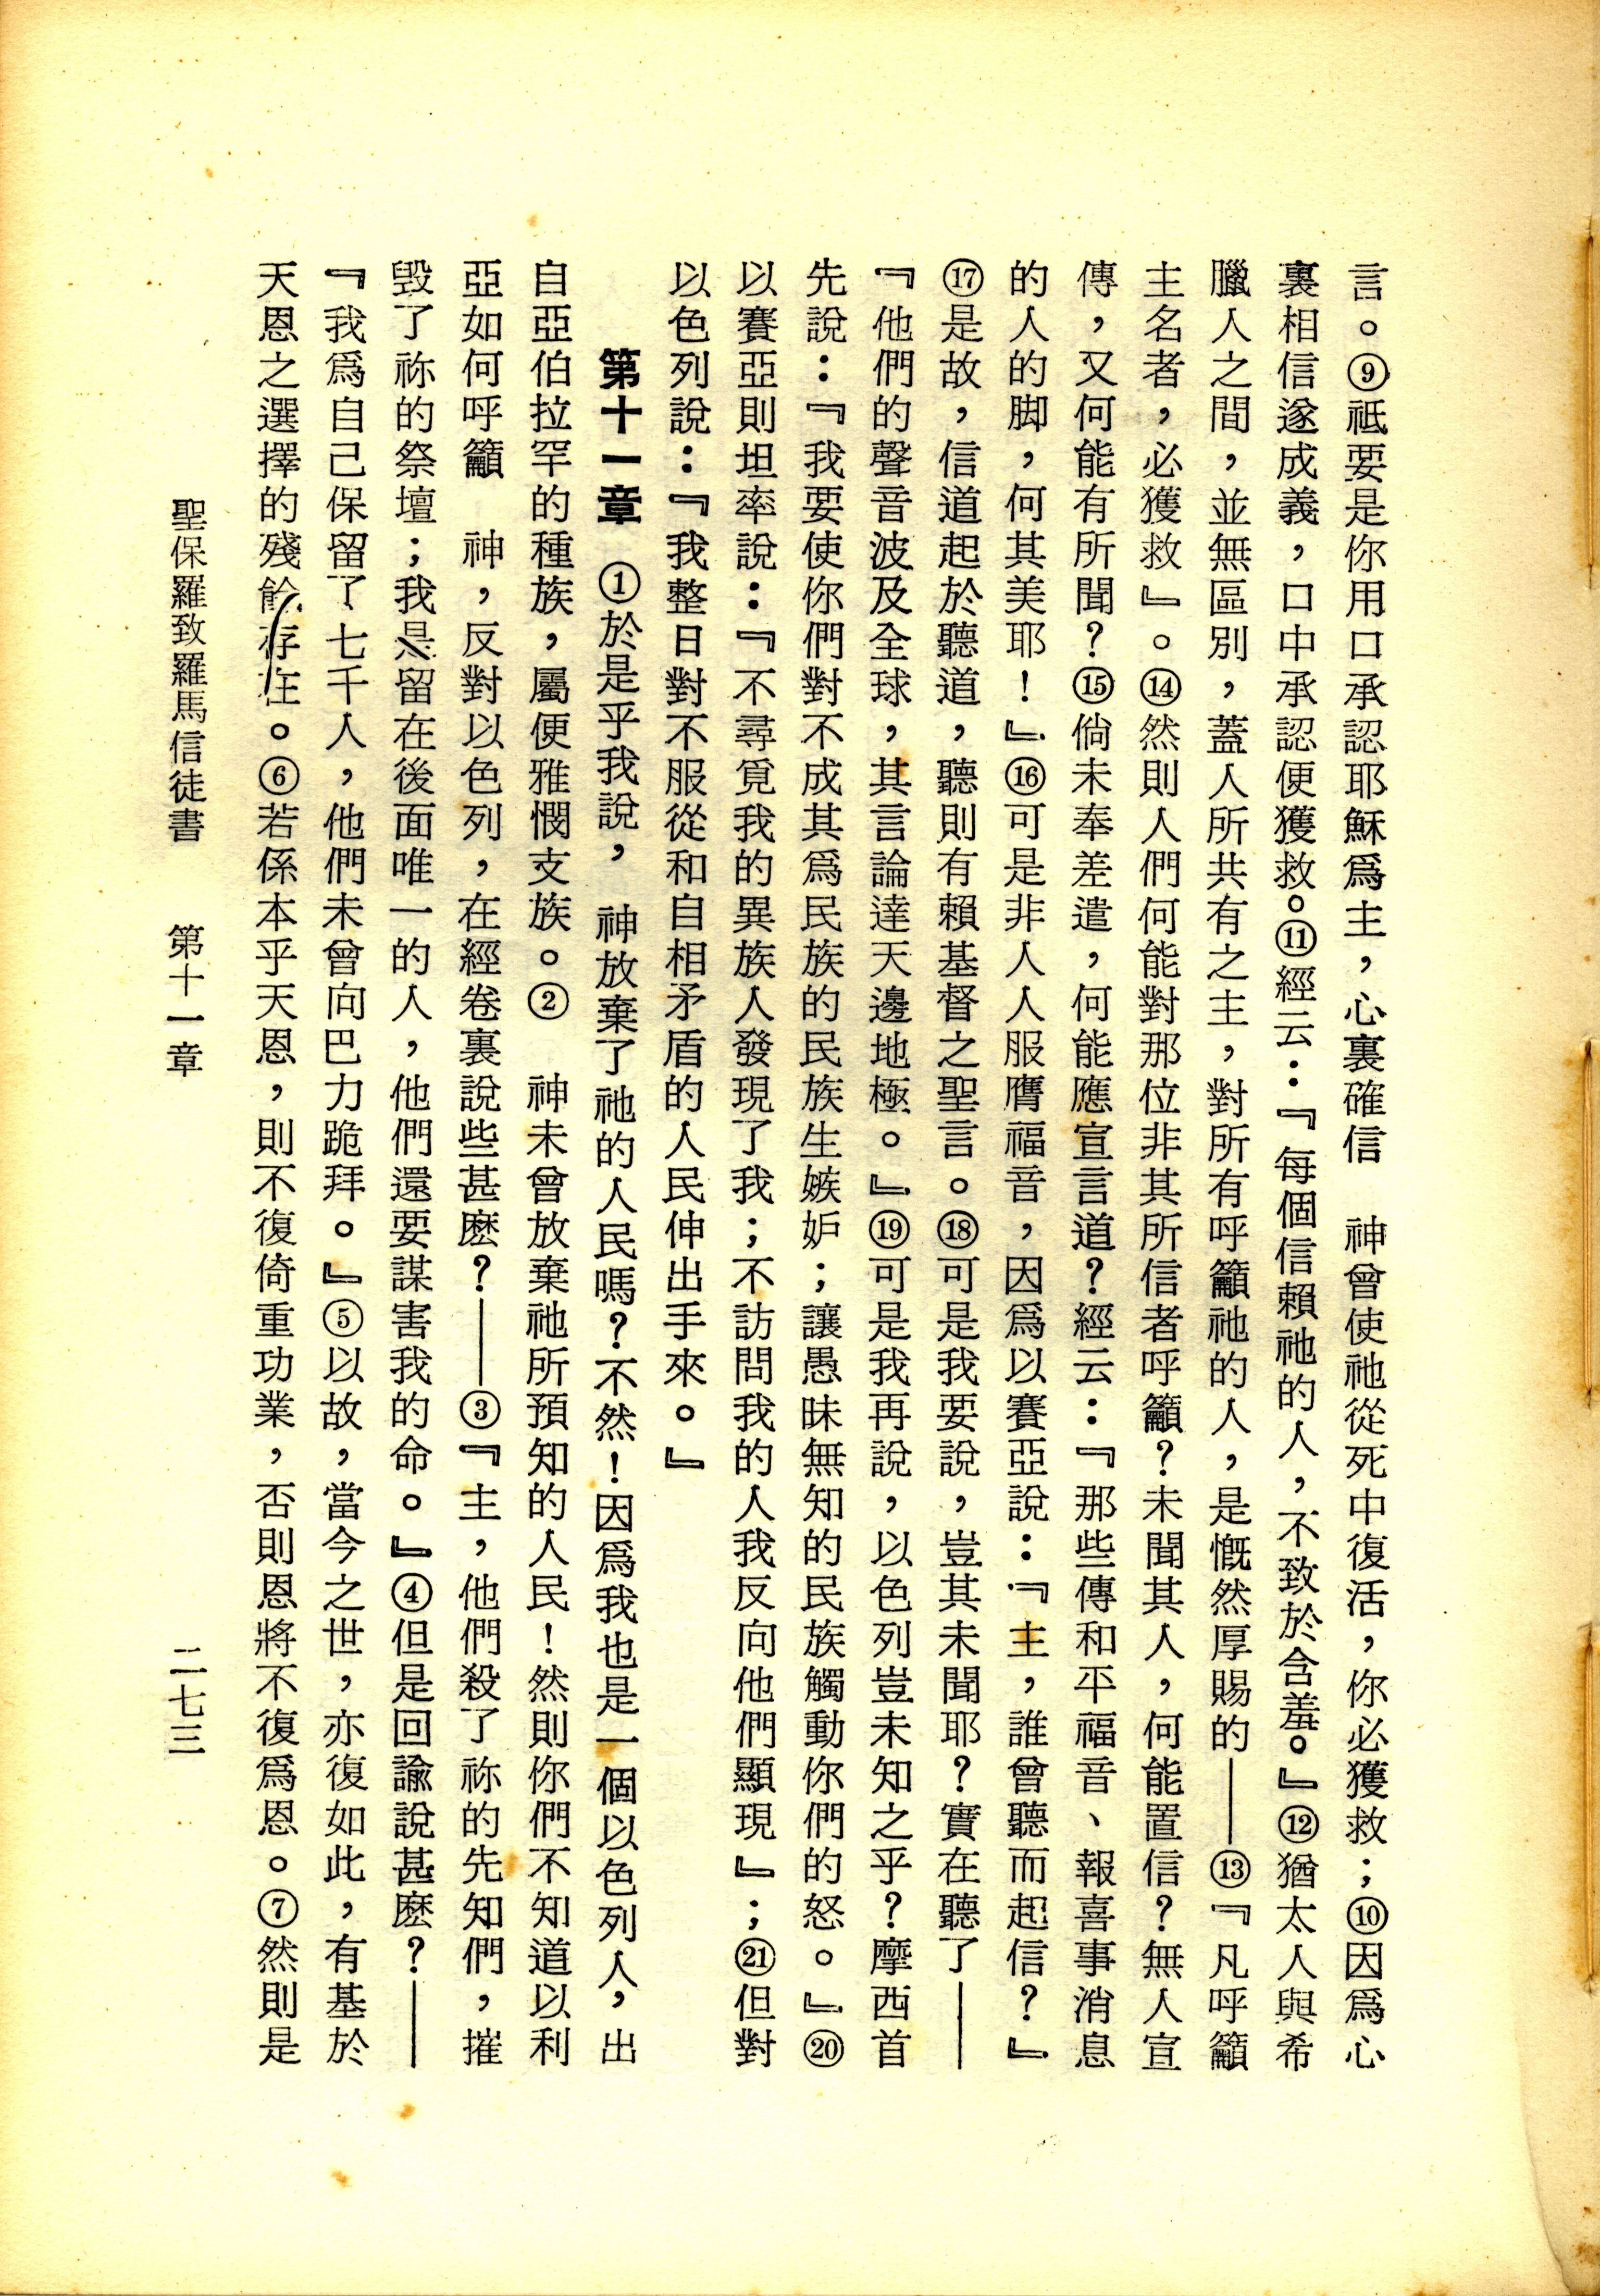 言。⑨祗要是你用口承認耶穌爲主，心裏確信　神曾使祂從死中復活，你必獲救；⑩因爲心
裏相信遂成義，口中承認便獲救。⑪經云：『每個信賴祂的人，不致於含羞。』⑫猶太人與希
臘人之間，並無區別，蓋人所共有之主，對所有呼籲祂的人，是慨然厚賜的——⑬『凡呼籲
主名者，必獲救』。⑭然則人們何能對那位非其所信者呼籲？未聞其人，何能置信？無人宣
傳，又何能有所聞？⑮倘未奉差遣，何能應宣言道？經云：『那些傳和平福音、報喜事消息
的人的脚，何其美耶！』⑯可是非人人服膺福音，因爲以賽亞說：『主，誰曾聽而起信？』
⑰是故，信道起於聽道，聽則有賴基督之聖言。⑱可是我要說，豈其未聞耶？實在聽了——
『他們的聲音波及全球，其言論達天邊地極。』⑲可是我再說，以色列豈未知之乎？摩西首
先說：『我要使你們對不成其爲民族的民族生嫉妒；讓愚昧無知的民族觸動你們的怒。』⑳
以賽亞則坦率說：『不尋覓我的異族人發現了我；不訪問我的人我反向他們顯現』；㉑但對
以色列說：『我整日對不服從和自相矛盾的人民伸出手來。』
第十一章　①於是乎我說，　神放棄了祂的人民嗎？不然！因爲我也是一個以色列人，出
自亞伯拉罕的種族，屬便雅憫支族。②　神未曾放棄祂所預知的人民！然則你們不知道以利
亞如何呼籲　神，反對以色列，在經卷裏說些甚麽？——③『主，他們殺了祢的先知們，摧
毀了祢的祭壇；我是留在後面唯一的人，他們還要謀害我的命。』④但是回諭說甚麽？——
『我爲自己保留了七千人，他們未曾向巴力跪拜。』⑤以故，當今之世，亦復如此，有基於
天恩之選擇的殘餘存在。⑥若係本乎天恩，則不復倚重功業，否則恩將不復爲恩。⑦然則是
聖保羅致羅馬信徒書　第十一章　二七三